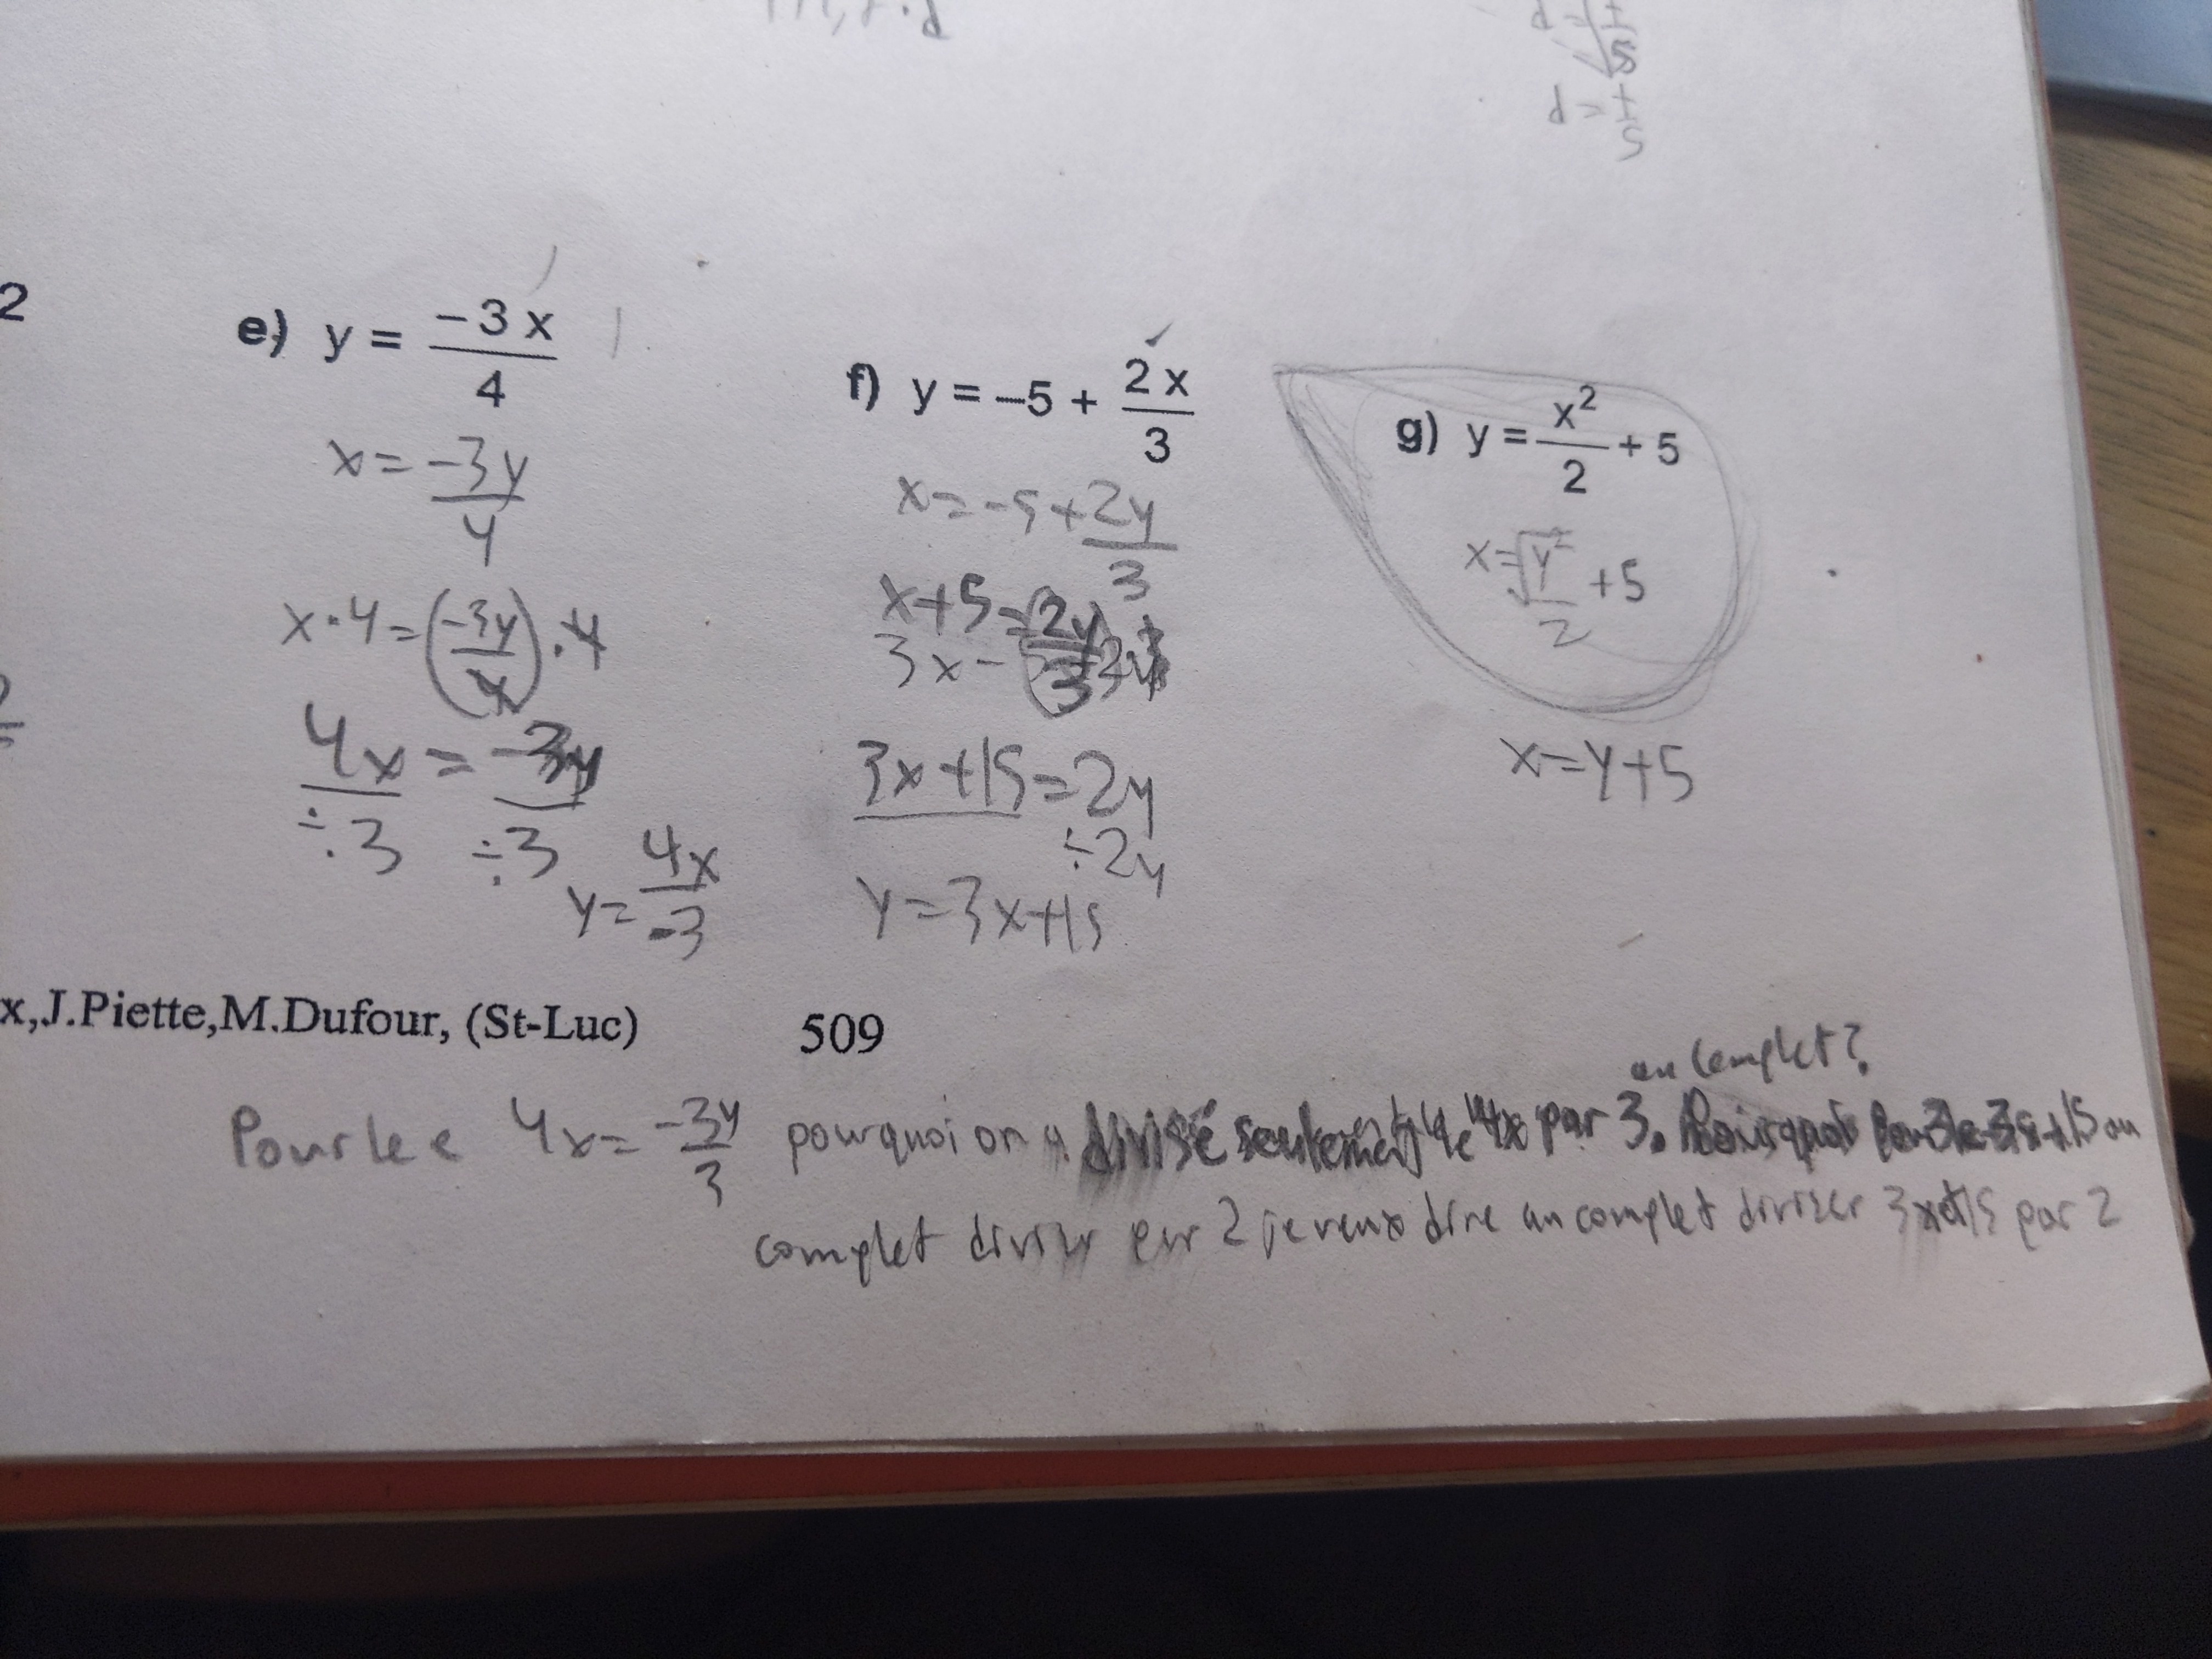 d = ±
5
d = ±
5
2
e) y = -3x/4
x = -3y/4
x·4 = (-3y/4)·4
4x = -3y
÷3 ÷3
y = 4x/-3
f) y = –5 + 2x/3
x = -5 + 2y/3
x+5 = 2y
3x
3x+15 = 2y
÷2y
y = 3x+15
g) y = x²/2 + 5
x = √y²/2 + 5
x = y+5
x,J.Piette,M.Dufour, (St-Luc) 509
au complet?
Pour le e 4x = -3y/3 pourquoi on a divisé seulement le 4x par 3. Pourquoi 3x+15 au
complet diviser par 2 je veux dire au complet divizer 3x+15 par 2